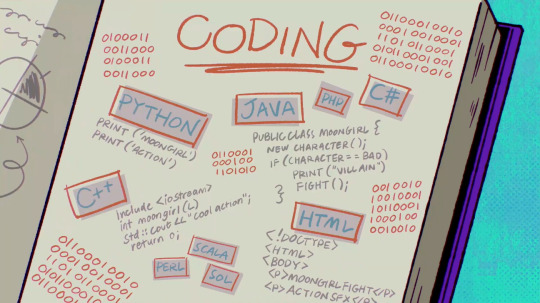 CODING
0100011
0011000
0100011
0011000
01100010010
00010010001
1101 011 0001
01011001001
01100010010
PYTHON
PRINT ('MOONGIRL')
PRINT ('ACTION')
JAVA
PHP
C#
PUBLIC CLASS MOONGIRL {
NEW CHARACTER();
IF (CHARACTER == BAD)
PRINT ("VILLAIN")
FIGHT();
}
0110001
000100
1101010
C++
Include <iostream>
int moongirl(L)
std::cout << "cool action";
return 0;
0010010
10010001
10110001
1000100
0010010
HTML
<!DOCTYPE>
<HTML>
<BODY>
<P>MOONGIRLFIGHT</P>
<P>ACTIONSFX</P>
SCALA
PERL
SQL
01100010010
00010010001
1101 0110001